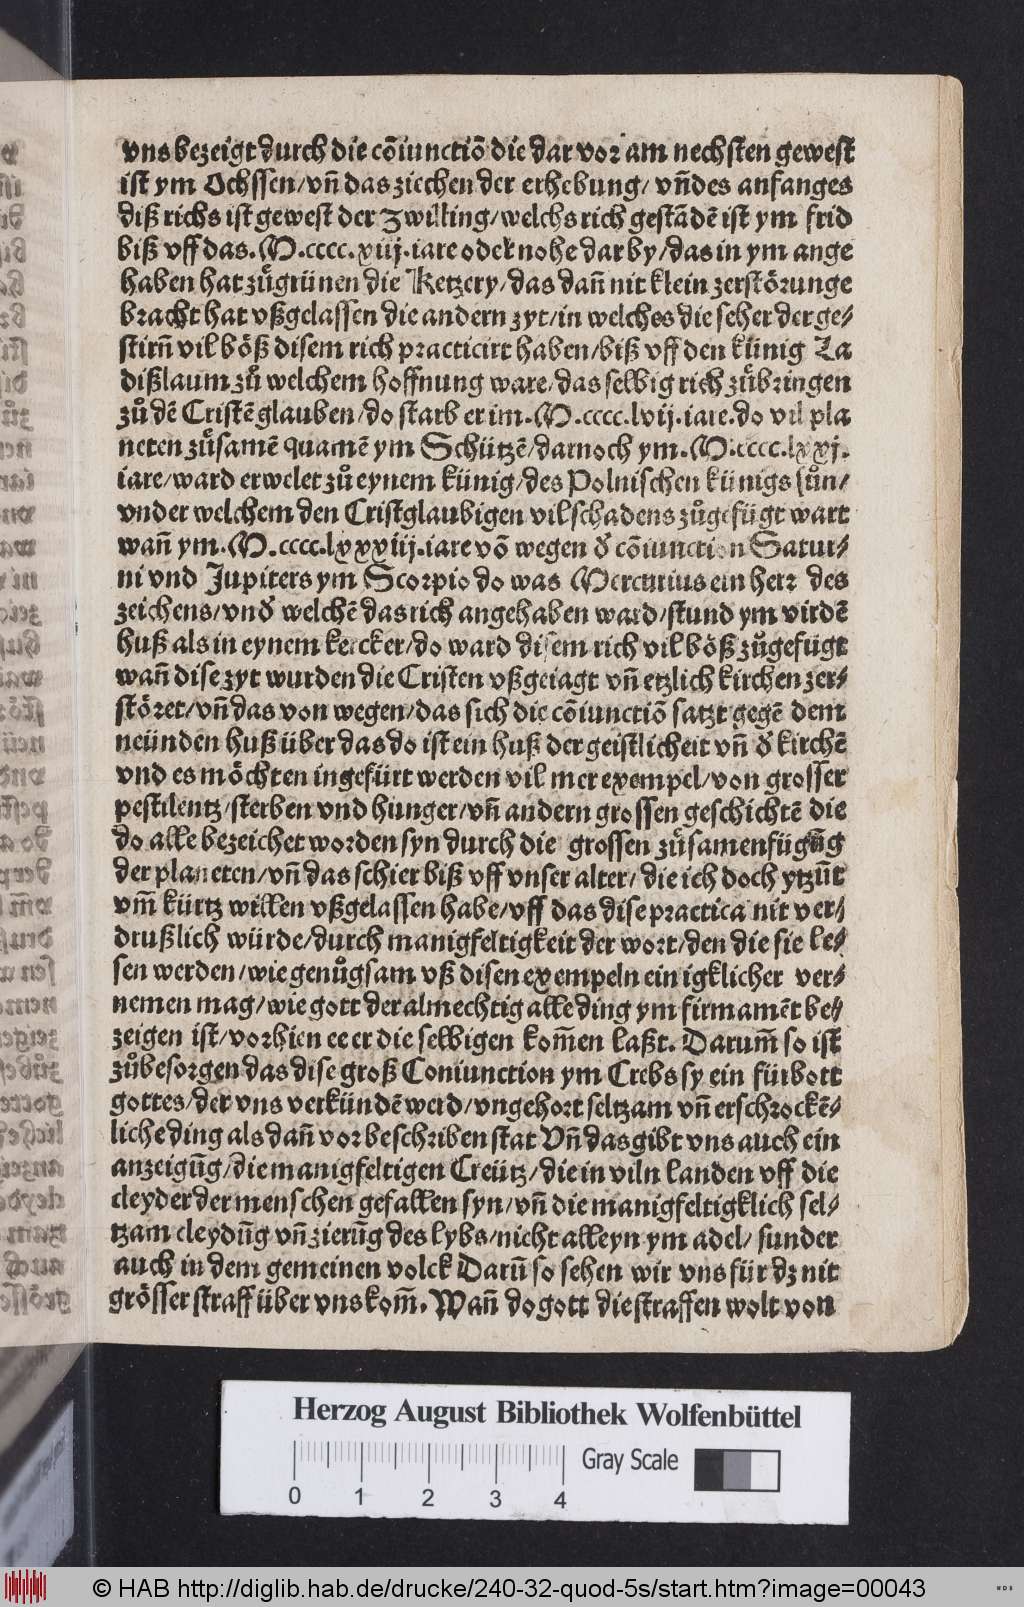 vns bezeigt durch die cōiunctiō die dar vor am nechsten gewest
ist ym Ochssen/ vñ das ziechen der erhebung/ vñ des anfanges
diß richs ist gewest der Zwilling/ welchs rich gestādē ist ym frid
biß vff das. M.cccc.xiij. iare oder nohe dar by/ das in ym ange
haben hat zuͦ grünen die Ketzery/ das dañ nit klein zerstörunge
bracht hat vßgelassen die andern zyt/ in welches die seher der ge-
stirñ vil böß disem rich practicirt haben/ biß vff den künig La
dißlaum zuͦ welchem hoffnung ware/ das selbig rich zuͦbringen
zuͦ dē Cristē glauben/ do starb er im. M.cccc.lvij. iare. do vil pla
neten zuͦsamē quamē ym Schützē/ darnoch ym. M.cccc.lxxj.
iare/ ward erwelet zuͦ eynem künig/ des Polnischen künigs suͦn/
vnder welchem den Cristglaubigen vil schadens zuͦgefügt wart
wañ ym. M.cccc.lxxxiiij. iare vō wegen đ cōiunction Satur-
ni vnd Jupiters ym Scorpio do was Mercurius ein herr des
zeichens/ vnđ welchē das rich angehaben ward/ stund ym virdē
huß als in eynem kercker/ do ward disem rich vil böß zuͦgefügt
wañ dise zyt wurden die Cristen vßgeiagt vñ etzlich kirchen zer-
störet/ vñ das von wegen/ das sich die cōiunctiō satzt gegē dem
neünden huß über das do ist ein huß der geistlicheit vñ đ kirchē
vnd es möchten ingefürt werden vil mer exempel/ von grosser
pestilentz/ sterben vnd hunger/ vñ andern grossen geschichtē die
do alle bezeichet worden syn durch die grossen zuͦsamenfügūg
der planeten/ vñ das schier biß vff vnser alter/ die ich doch ytzūt
vm̄ kürtz willen vßgelassen habe/ vff das dise practica nit ver-
drußlich würde/ durch manigfeltigkeit der wort/ den die sie le-
sen werden/ wie genuͦgsam vß disen exempeln ein igklicher ver-
nemen mag/ wie gott der almechtig alle ding ym firmamēt be-
zeigen ist/ vorhien ee er die selbigen kom̄en laßt. Darum̄ so ist
zuͦbesorgen das dise groß Coniunction ym Crebs sy ein fürbott
gottes/ der vns verkündē werd/ vngehort seltzam vñ erschrockē-
liche ding als dañ vor beschriben stat Vñ das gibt vns auch ein
anzeigūg/ die manigfeltigen Creütz/ die in viln landen vff die
cleyder der menschen gefallen syn/ vñ die manigfeltigklich sel-
tzam cleydūg vñ zierūg des lybs/ nicht alleyn ym adel/ sunder
auch in dem gemeinen volck Darū so sehen wir vns für dz nit
grösser straff über vns kom̄. Wañ do gott die straffen wolt von
Herzog August Bibliothek Wolfenbüttel
Gray Scale
0 1 2 3 4
© HAB http://diglib.hab.de/drucke/240-32-quod-5s/start.htm?image=00043